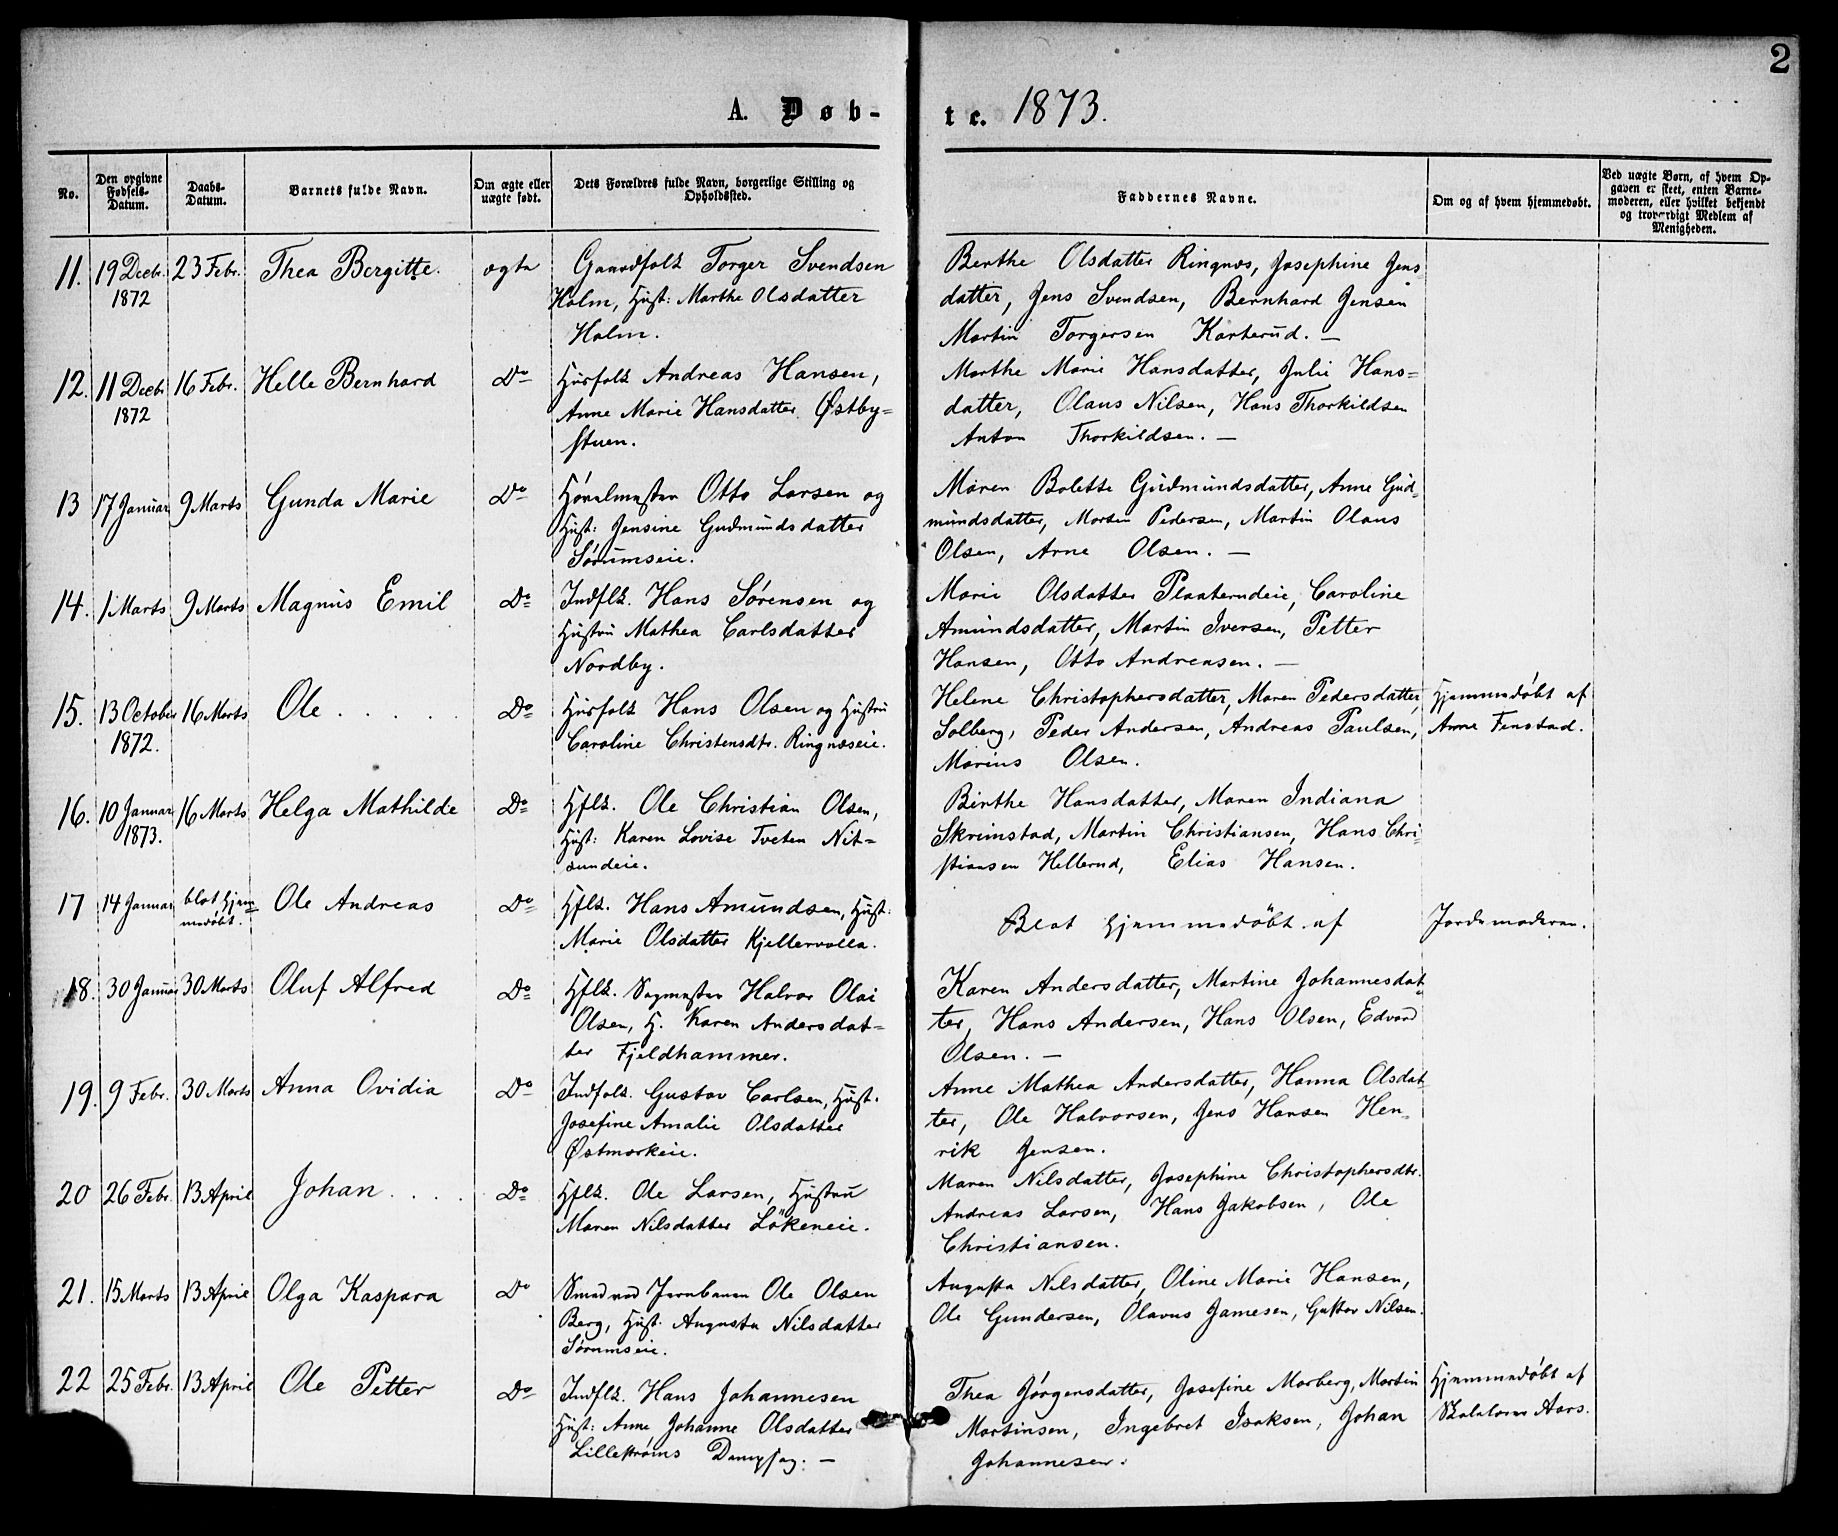 2
A. Døb-
te. 1873.
No.
Den opgivne Fødsels-Datum.
Daabs-Datum.
Barnets fulde Navn.
Om ægte eller uægte født.
Dets Forældres fulde Navn, borgerlige Stilling og Opholdssted.
Faddernes Navne.
Om og af hvem hjemmedøbt.
Ved uægte Børn, af hvem Opgaven er skeet, enten Barnemoderen, eller hvilket bekjendt og troværdigt Medlem af Menigheden.
11. 19 Decbr. 1872 23 Febr. Thea Bergitte. ægte
Gaardfolk Torger Svendsen
Holm, Hust: Marthe Olsdatter
Holm.
Berthe Olsdatter Ringnæs, Josephine Jens
datter, Jens Svendsen, Bernhard Jensen
Martin Torgersen Karterud. —
12. 11 Decbr 1872 16 Febr. Helle Bernhard Do
Husfolk Andreas Hansen,
Anne Marie Hansdatter Østby=
stuen.
Marthe Marie Hansdatter, Julie Hans=
datter, Olaus Nilsen, Hans Thorkildsen
Anton Thorkildsen. —
13 17 Januar 9 Marts Gunda Marie Do
Høvelmester Otto Larsen og
Hust: Jensine Gudmundsdatter
Sørumseie.
Maren Bolette Gudmundsdatter, Anne Gud=
mundsdatter, Morten Pedersen, Martin Olaus
Olsen, Arne Olsen. —
14. 1 Marts 9 Marts Magnus Emil Do
Indflk. Hans Sørensen og
Hustru Mathea Carlsdatter
Nordby.
Marie Olsdatter Plaaterudeie, Caroline
Amundsdatter, Martin Iversen, Petter
Hansen, Otto Andreasen. —
15. 13 October 1872. 16 Marts Ole . . . . . Do
Husfolk Hans Olsen og Hustru
Caroline Christensdtr. Ringnæseie.
Helene Christophersdatter, Maren Pedersdatter,
Solberg, Peder Andersen, Andreas Paulsen,
Marius Olsen.
Hjemmedøbt af
Arne Fenstad.
16. 10 Januar 1873. 16 Marts Helga Mathilde Do
Hflk. Ole Christian Olsen,
Hust: Karen Lovise Tveten Nit=
sundeie.
Birthe Hansdatter, Maren Indiana
Skrimstad, Martin Christiansen, Hans Chri
stiansen Hellerud, Elias Hansen.
17 14 Januar blot hjem=
medøbt. Ole Andreas Do
Hflk. Hans Amundsen, Hust:
Marie Olsdatter Kjellervolla.
Blot hjemmedøbt af Jordemoderen.
18. 30 Januar 30 Marts Oluf Alfred Do
Hflk. Sagmester Halvor Olai
Olsen, H. Karen Andersdat=
ter Fjeldhammer.
Karen Andersdatter, Martine Johannesdat=
ter, Hans Andersen, Hans Olsen, Edvard
Olsen. —
19. 9 Febr. 30 Marts Anna Ovidia Do
Indfolk. Gustav Carlsen, Hust.
Josefine Amalie Olsdatter
Østmarkeie.
Anne Mathea Andersdatter, Hanna Olsdat
ter, Ole Halvorsen, Jens Hansen Hen=
rik Jensen.
20 26 Febr. 13 April Johan . . . . Do
Hflk. Ole Larsen, Hustru
Maren Nilsdatter Løkeneie.
Maren Nilsdatter, Josephine Christophersdtr.
Andreas Larsen, Hans Jakobsen, Ole
Christiansen.
21. 15 Marts 13 April Olga Kaspara Do
Smed ved Jernbanen Ole Olsen
Berg, Hust. Augusta Nilsdatter
Sørumseie.
Augusta Nilsdatter, Oline Marie Hansen,
Ole Gundersen, Olavus Jamesen, Gustav Nilsen.
22 25 Febr. 13 April Ole Petter Do
Indflk. Hans Johannesen
Hust: Anne Johanne Olsdatter
Lillestrøms Dampsag. —
Thea Jørgensdatter, Josefine Morberg, Martin
Martinsen, Ingebret Isaksen, Johan
Johannesen.
Hjemmedøbt af
Skolelærer Aars.